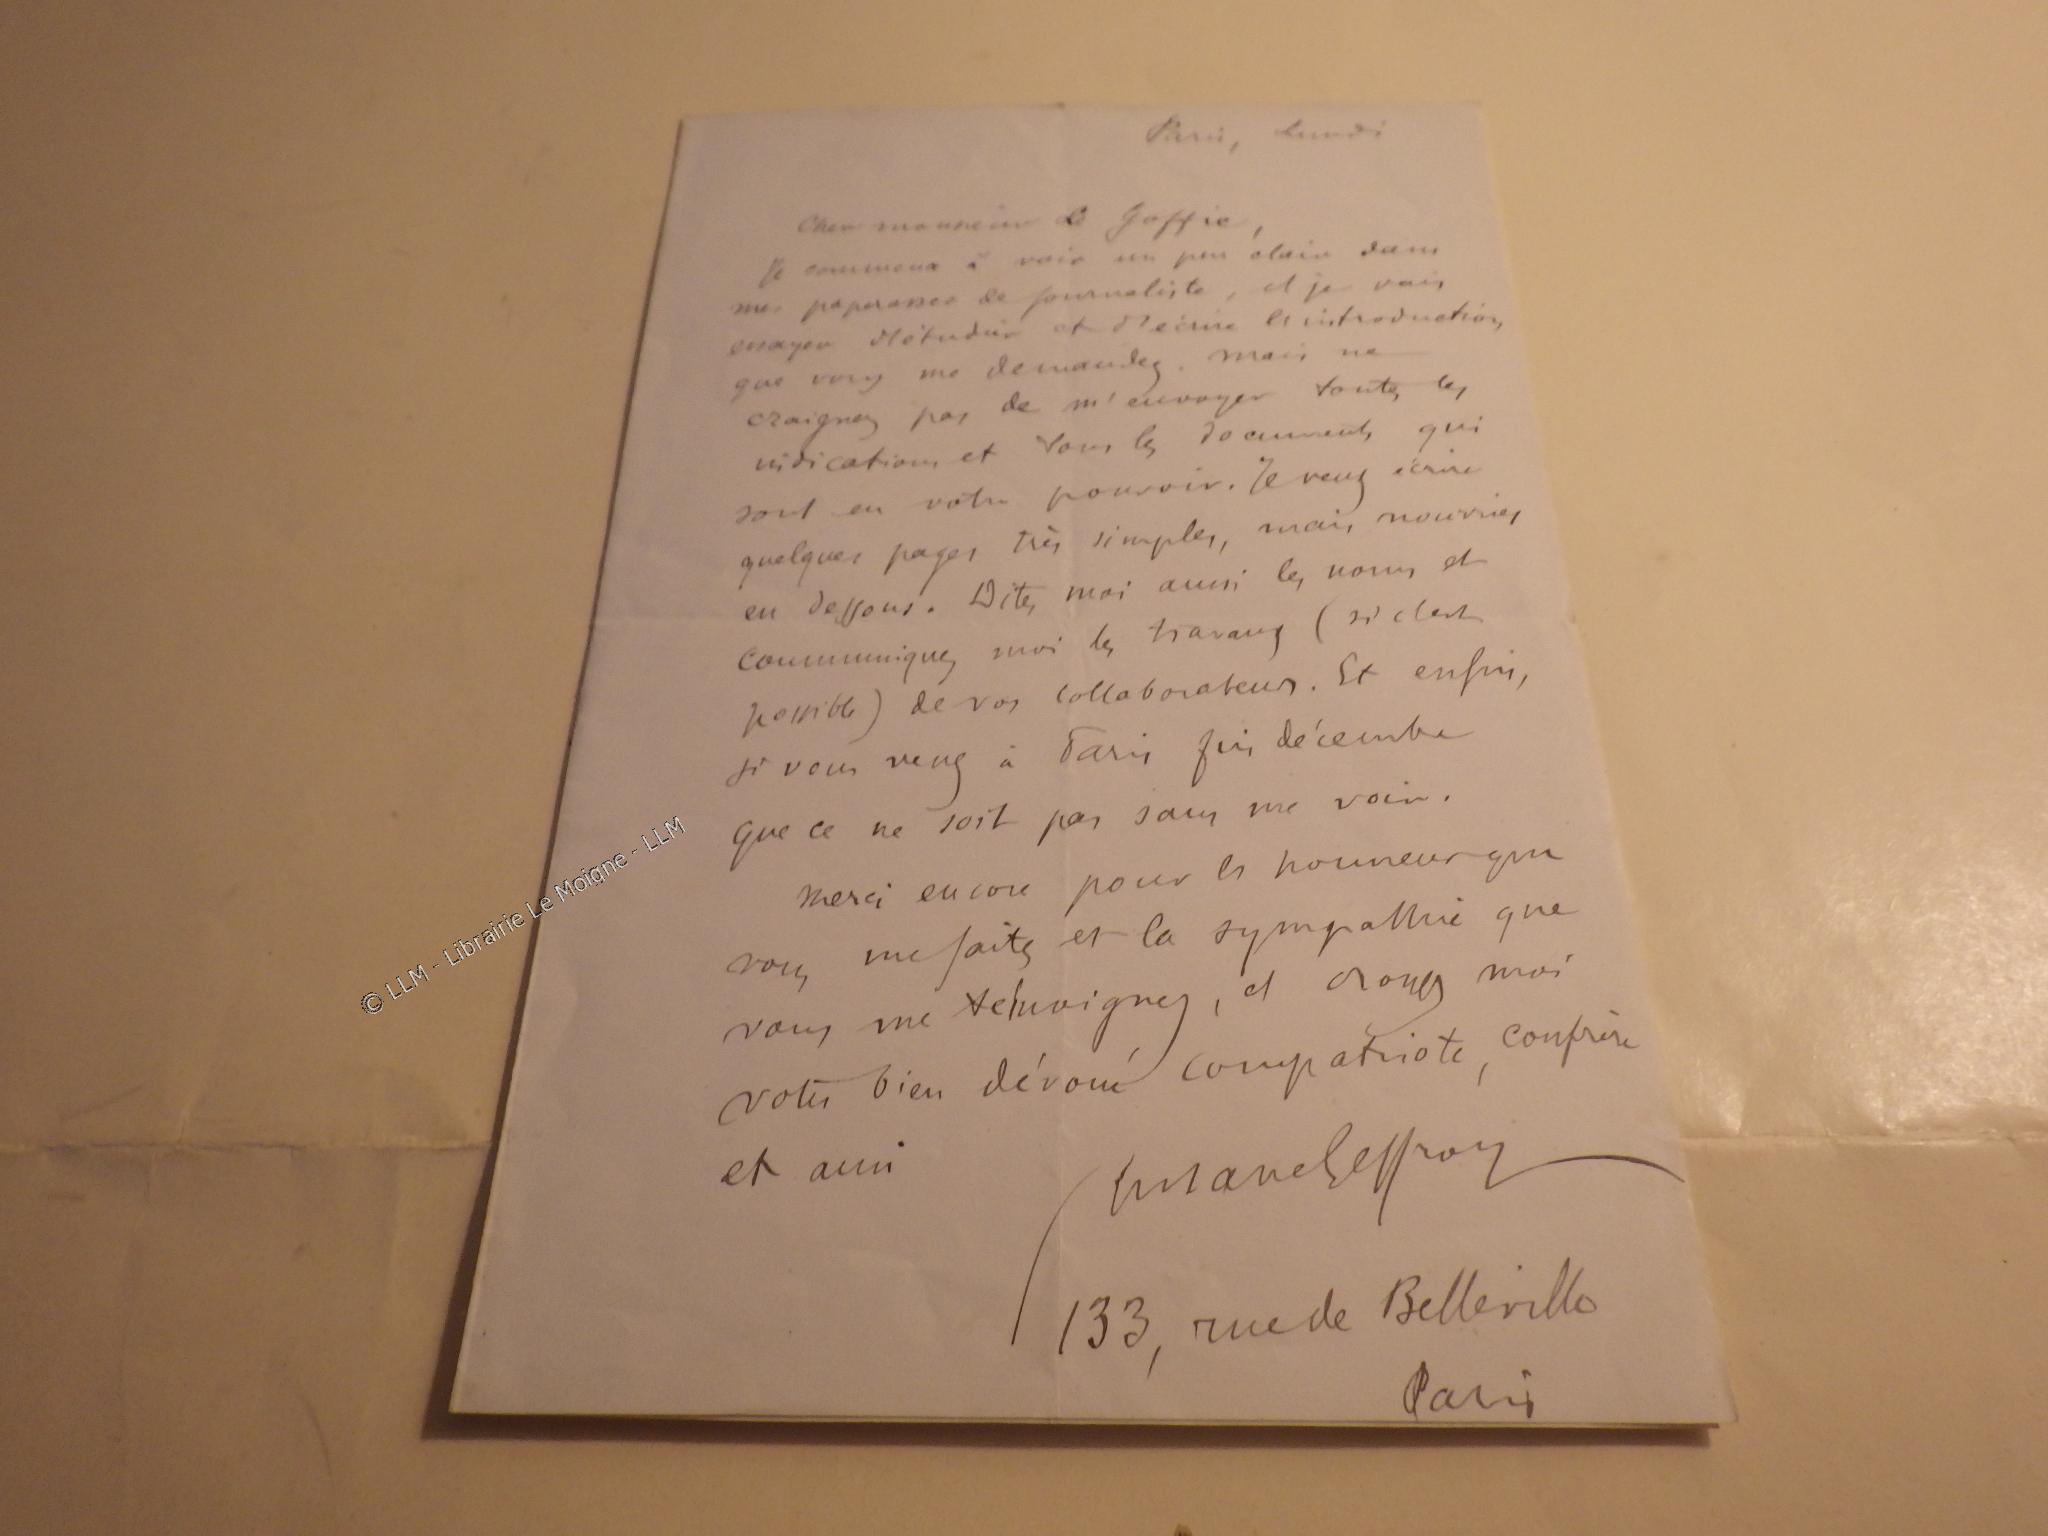 Paris, Lundi
Cher monsieur Le Goffic,
Je commence à voir un peu clair dans
mes paperasses de journaliste, et je vais
essayer d'étudier et d'écrire l'introduction
que vous me demandez. Mais ne
craignez pas de m'envoyer toutes les
indications et tous les documents qui
sont en votre pouvoir. Je veux écrire
quelques pages très simples, mais nourries
en dessous. Dites moi aussi les noms et
communiquez moi les travaux (si c'est
possible) de vos collaborateurs. Et enfin,
si vous venez à Paris fin décembre
que ce ne soit pas sans me voir.
Merci encore pour l'honneur que
vous me faites et la sympathie que
vous me témoignez, et croyez moi
votre bien dévoué compatriote, confrère
et ami
Gustave Geffroy
133, rue de Belleville
Paris
© LLM - Librairie Le Moigne - LLM